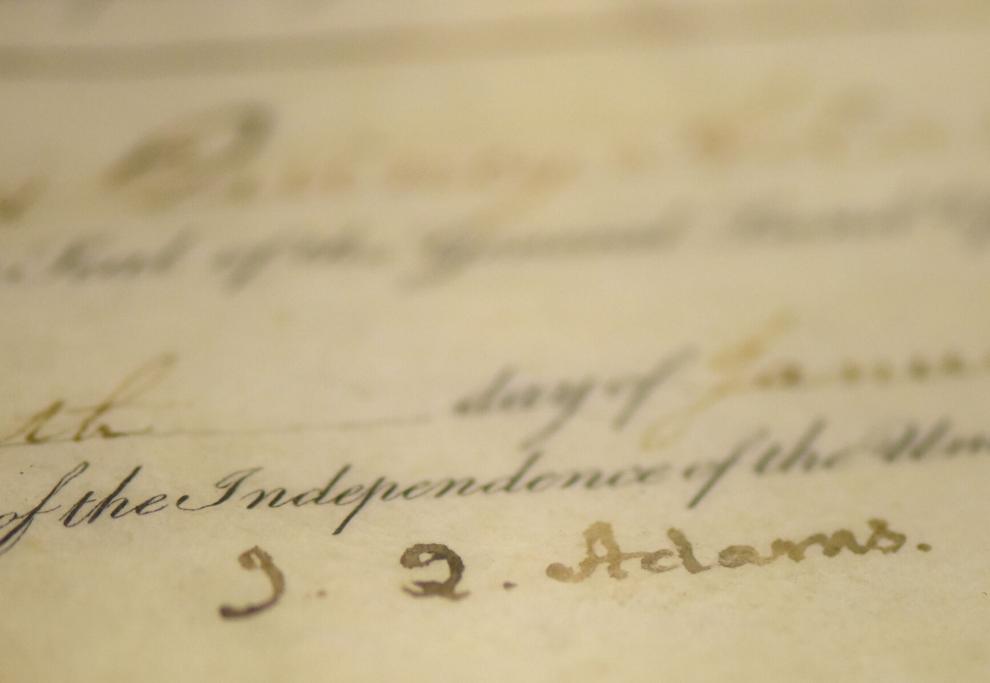 Seal of the General Land
th day of Janu
of the Independence of the Un
J. Q. Adams.